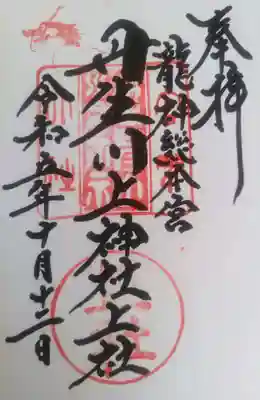 奉拝
龍神総本宮
丹生川上神社上社
令和五年十月十二日